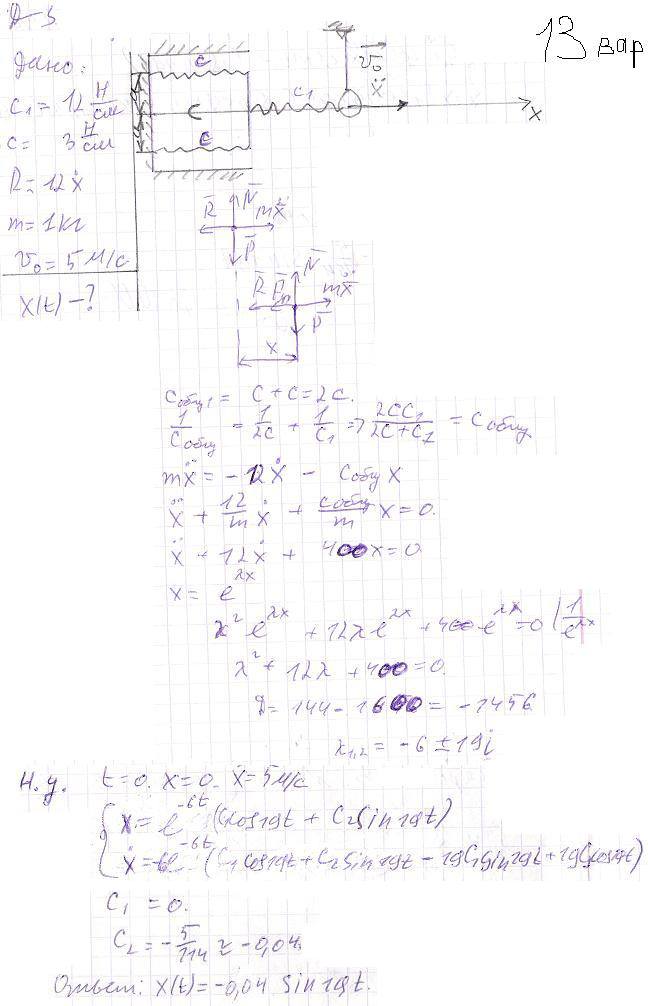 Д-3
13 вар
Дано:
c₁ = 12 Н/см
c = 3 Н/см
R = 12ẋ
m = 1 кг
v₀ = 5 м/с
x(t) - ?
c
c
c
c₁
v₀
ẍ
x
R̄ N̄ mẍ
P̄
R̄ P̄ₙ N̄ mẍ
P̄
x
Cобщ₁ = c + c = 2c.
1/Cобщ = 1/2c + 1/c₁ => 2cc₁/2c+c₁ = Cобщ
mẍ = -12ẋ - Cобщ x
ẍ + 12/m ẋ + Cобщ/m x = 0.
ẍ + 12ẋ + 400x = 0
x = e^λx
λ² e^λx + 12λe^λx + 400 e^λx = 0 | 1/e^λx
λ² + 12λ + 400 = 0.
D = 144 - 1600 = -1456
λ₁,₂ = -6 ± 19i
Н.у. t = 0. x = 0. ẋ = 5 м/с
x = e^-6t (C₁cos19t + C₂sin19t)
ẋ = -6e^-6t (C₁cos19t + C₂sin19t - 19C₁sin19t + 19C₂cos19t)
C₁ = 0.
C₂ = -5/114 ≈ -0,04.
Ответ: x(t) = -0,04 sin19t.